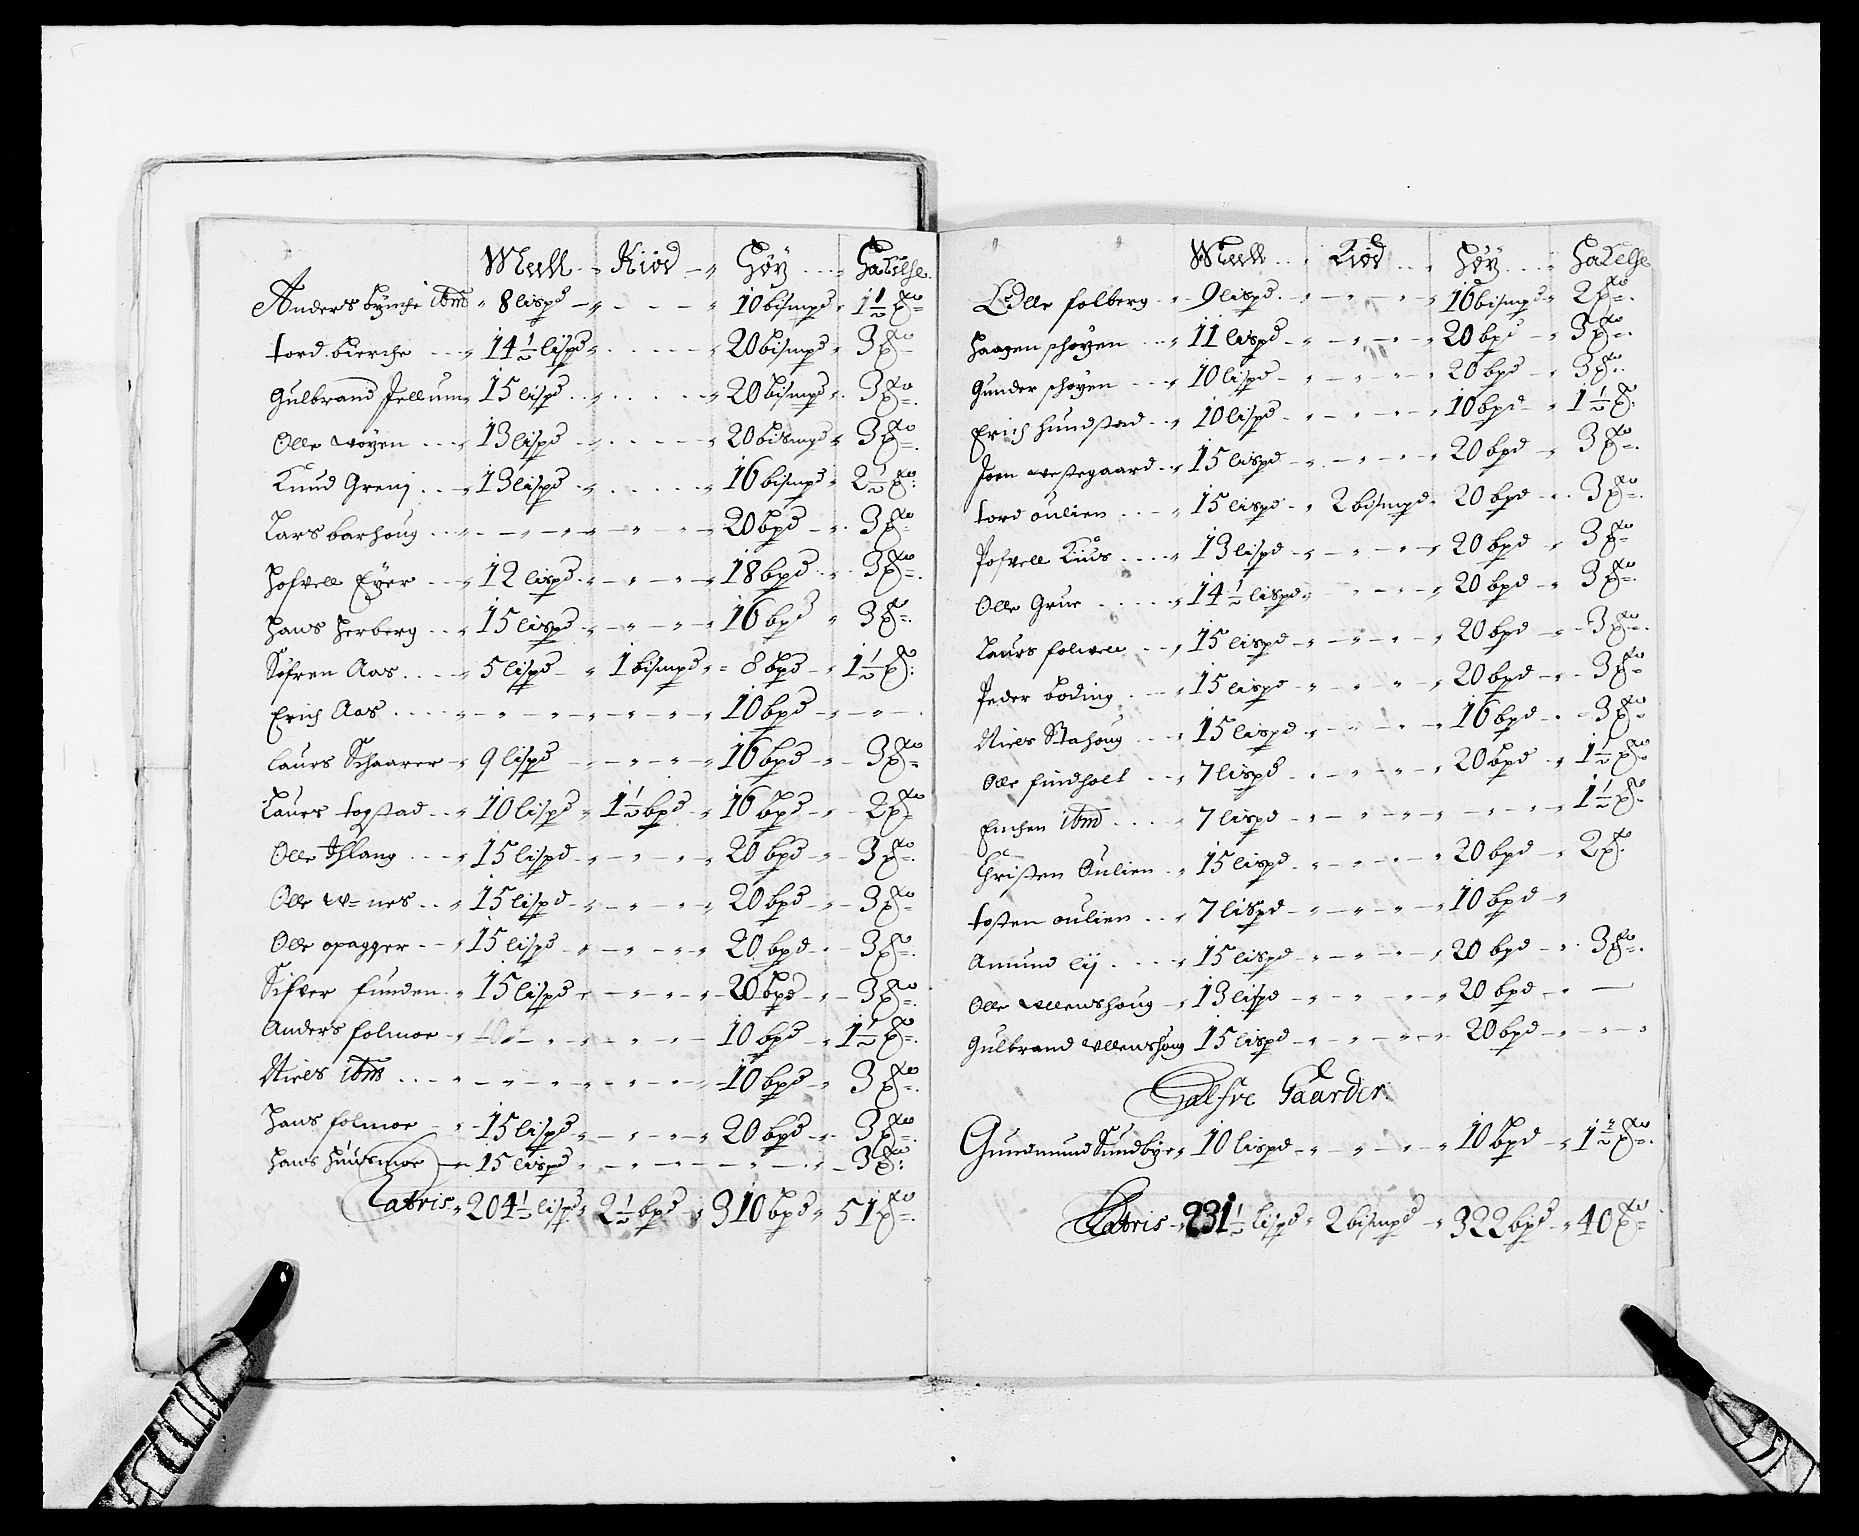 Meell Kiöd Höy Hakelse
Anders ibm 8 lispd 10 bismpd 1½
tord bierche 14½ lispd 20 bismpd 3
Gulbrand Jellum 15 lispd 20 bismpd 3
Olle Wöyen 13 lispd 20 bismpd 3
Knud Greni 13 lispd 16 bismpd 2½
Lars barhoug 20 bpd 3
Hofvell Eger 12 lispd 18 bpd 3
Hans Herberg 15 lispd 16 bpd 3
Söfren Aas 5 lispd 1 bismpd 8 bpd 1½
Erich Aas 10 bpd
Laurs Schaarer 9 lispd 16 bpd 3
Laurs togstad 10 lispd 1½ bpd 16 bpd 2
Olle 15 lispd 20 bpd 3
Olle 15 lispd 20 bpd 3
Olle opagger 15 lispd 20 bpd 3
Sifver funden 15 lispd 20 bpd 3
Anders folmoe 10 bpd 1½
Niels ibm 10 bpd 3
Hans folmoe 15 lispd 20 bpd 3
Hans Huusmoe 15 lispd 3
Latris 204½ lispd 2½ bpd 310 bpd 51
Meell Kiöd Höy Hakelse
Olle folberg 9 lispd 16 bismpd 2
Haagen schöyen 11 lispd 20 bpd 3
Gunder schöyen 10 lispd 20 bpd 3
Erich hundstad 10 lispd 10 bpd 1½
Joen westegaard 15 lispd 20 bpd 3
tord oulien 15 lispd 2 bismpd 20 bpd 3
Pofvell Kius 13 lispd 20 bpd 3
Olle Grue 14½ lispd 20 bpd 3
Laurs 15 lispd 20 bpd 3
Peder böding 15 lispd 20 bpd 3
Niels Stahoug 15 lispd 16 bpd 3
Olle findholt 7 lispd 20 bpd 1½
Enchen ibm 7 lispd 1½
Christen Oulien 15 lispd 20 bpd 2
tosten oulien 7 lispd 10 bpd
Amund lij 15 lispd 20 bpd 3
Olle Ullenshoug 13 lispd 20 bpd
Gulbrand Ullenshoug 15 lispd 20 bpd
Halfve Gaarder
Gundmund Sundbye 10 lispd 10 bpd 1½
Latris 231½ lispd 2 bismpd 322 bpd 40